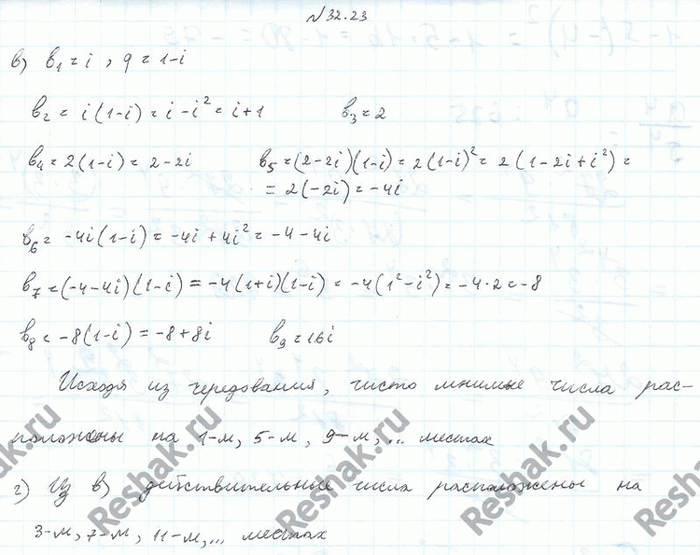 №32.23
в) b₁ = i , q = 1-i
b₂ = i(1-i) = i - i² = i+1 b₃ = 2
b₄ = 2(1-i) = 2-2i b₅ = (2-2i)(1-i) = 2(1-i)² = 2(1-2i+i²) =
= 2(-2i) = -4i
b₆ = -4i(1-i) = -4i+4i² = -4-4i
b₇ = (-4-4i)(1-i) = -4(1+i)(1-i) = -4(1²-i²) = -4·2 = -8
b₈ = -8(1-i) = -8+8i b₉ = 16i
Исходя из чередования, чисто мнимые числа рас-
положены на 1-м, 5-м, 9-м,... местах
г) Из в) действительные числа расположены на
3-м, 7-м, 11-м,... местах
Reshak.ru
Reshak.ru
Reshak.ru
Reshak.ru